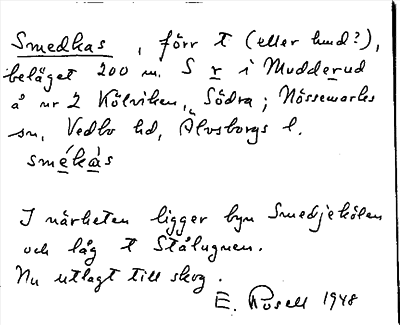 Smedkas, förr t (eller hmd?),
beläget 200 m. S r i Mudderud
å nr 2 Kölviken, Södra; Nössemarks
sn, Vedbo hd, Älvsborgs l.
smékàs
I närheten ligger byn Smedjekölen
och låg t Stålugnen.
Nu utlagt till skog.
E. Rosell 1948